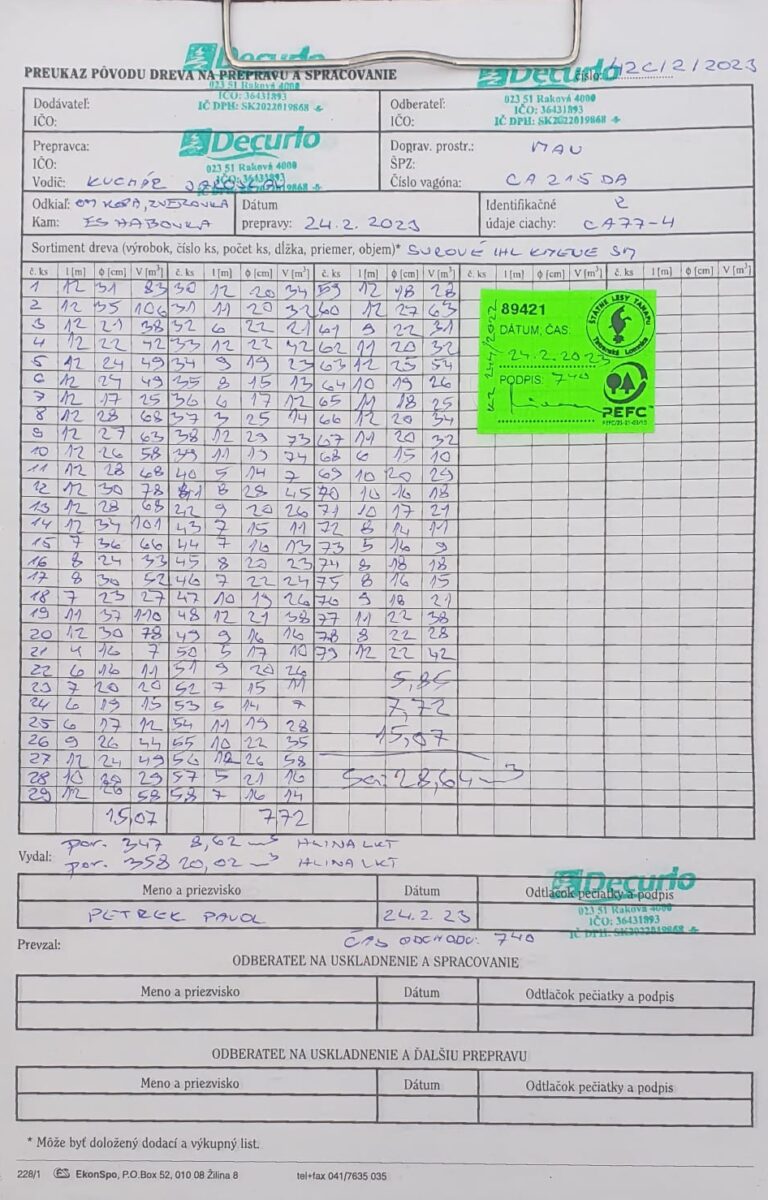 Decurio
023 51 Raková 4000
IČO: 36431893
IČ DPH: SK2022019868
Decurio
023 51 Raková 4000
IČO: 36431893
IČ DPH: SK2022019868
PREUKAZ PÔVODU DREVA NA PREPRAVU A SPRACOVANIE
číslo: 42C/2/2023
Dodávateľ:
IČO:
Odberateľ:
IČO:
Decurio
023 51 Raková 4000
IČO: 36431893
SK2022019868
Prepravca:
IČO:
Vodič: KUCHÁR
Doprav. prostr.: MAN
ŠPZ:
Číslo vagóna: CA 215 DA
Odkiaľ: ZVEROVKA
Kam: ES HABOVKA
Dátum
prepravy: 24.2.2023
Identifikačné
údaje ciachy: CA77-4
Sortiment dreva (výrobok, číslo ks, počet ks, dĺžka, priemer, objem)* SUROVÉ IHL KMENE SM
č. ks l [m] ϕ [cm] V [m³] č. ks l [m] ϕ [cm] V [m³] č. ks l [m] ϕ [cm] V [m³] č. ks l [m] ϕ [cm] V [m³] č. ks l [m] ϕ [cm] V [m³]
1 12 31 83 30 12 20 34 59 12 18 28
2 12 35 106 31 11 20 32 60 12 27 63
3 12 21 38 32 6 22 21 61 9 22 31
4 12 22 42 33 12 22 42 62 11 20 32
5 12 24 49 34 9 19 23 63 12 25 54
6 12 24 49 35 8 15 13 64 10 19 26
7 12 17 25 36 6 17 12 65 11 18 25
8 12 28 68 37 3 25 14 66 12 20 34
9 12 27 63 38 12 29 73 67 11 20 32
10 12 26 58 39 11 19 74 68 6 15 10
11 12 28 68 40 5 14 7 69 10 20 29
12 12 30 78 41 8 28 45 70 10 16 18
13 12 28 68 42 9 20 26 71 10 17 21
14 12 34 101 43 7 15 11 72 8 14 11
15 7 36 66 44 7 16 13 73 5 16 9
16 8 24 33 45 8 20 23 74 8 18 18
17 8 30 52 46 7 22 24 75 8 16 15
18 7 23 27 47 10 19 26 76 9 18 21
19 11 37 110 48 12 21 38 77 11 22 38
20 12 30 78 49 9 16 16 78 8 22 28
21 4 16 7 50 5 17 10 79 12 22 42
22 6 16 11 51 9 20 26
23 7 20 20 52 7 15 11 5,85
24 6 19 15 53 5 14 7 7,72
25 6 17 12 54 11 19 28
26 9 26 44 55 10 22 35 15,07
27 12 24 49 56 12 26 58
28 10 20 29 57 5 21 16 28,64 m³
29 12 26 58 58 7 16 14
15,07 772
89421
DÁTUM, ČAS:
24.2.2023
PODPIS: 740
ŠTÁTNE LESY TANAPU
Tatranská Lomnica
PEFC™
Vydal: por. 347 8,62 m³ HLINA LKT
por. 358 20,02 m³ HLINA LKT
Meno a priezvisko Dátum Odtlačok pečiatky a podpis
PETREK PAVOL 24.2.23
Decurio
023 51 Raková 4000
IČO: 36431893
IČ DPH: SK2022019868
Prevzal: ČAS ODCHODU: 740
ODBERATEĽ NA USKLADNENIE A SPRACOVANIE
Meno a priezvisko Dátum Odtlačok pečiatky a podpis
ODBERATEĽ NA USKLADNENIE A ĎALŠIU PREPRAVU
Meno a priezvisko Dátum Odtlačok pečiatky a podpis
* Môže byť doložený dodací a výkupný list.
228/1 EkonSpo, P.O.Box 52, 010 08 Žilina 8 tel+fax 041/7635 035